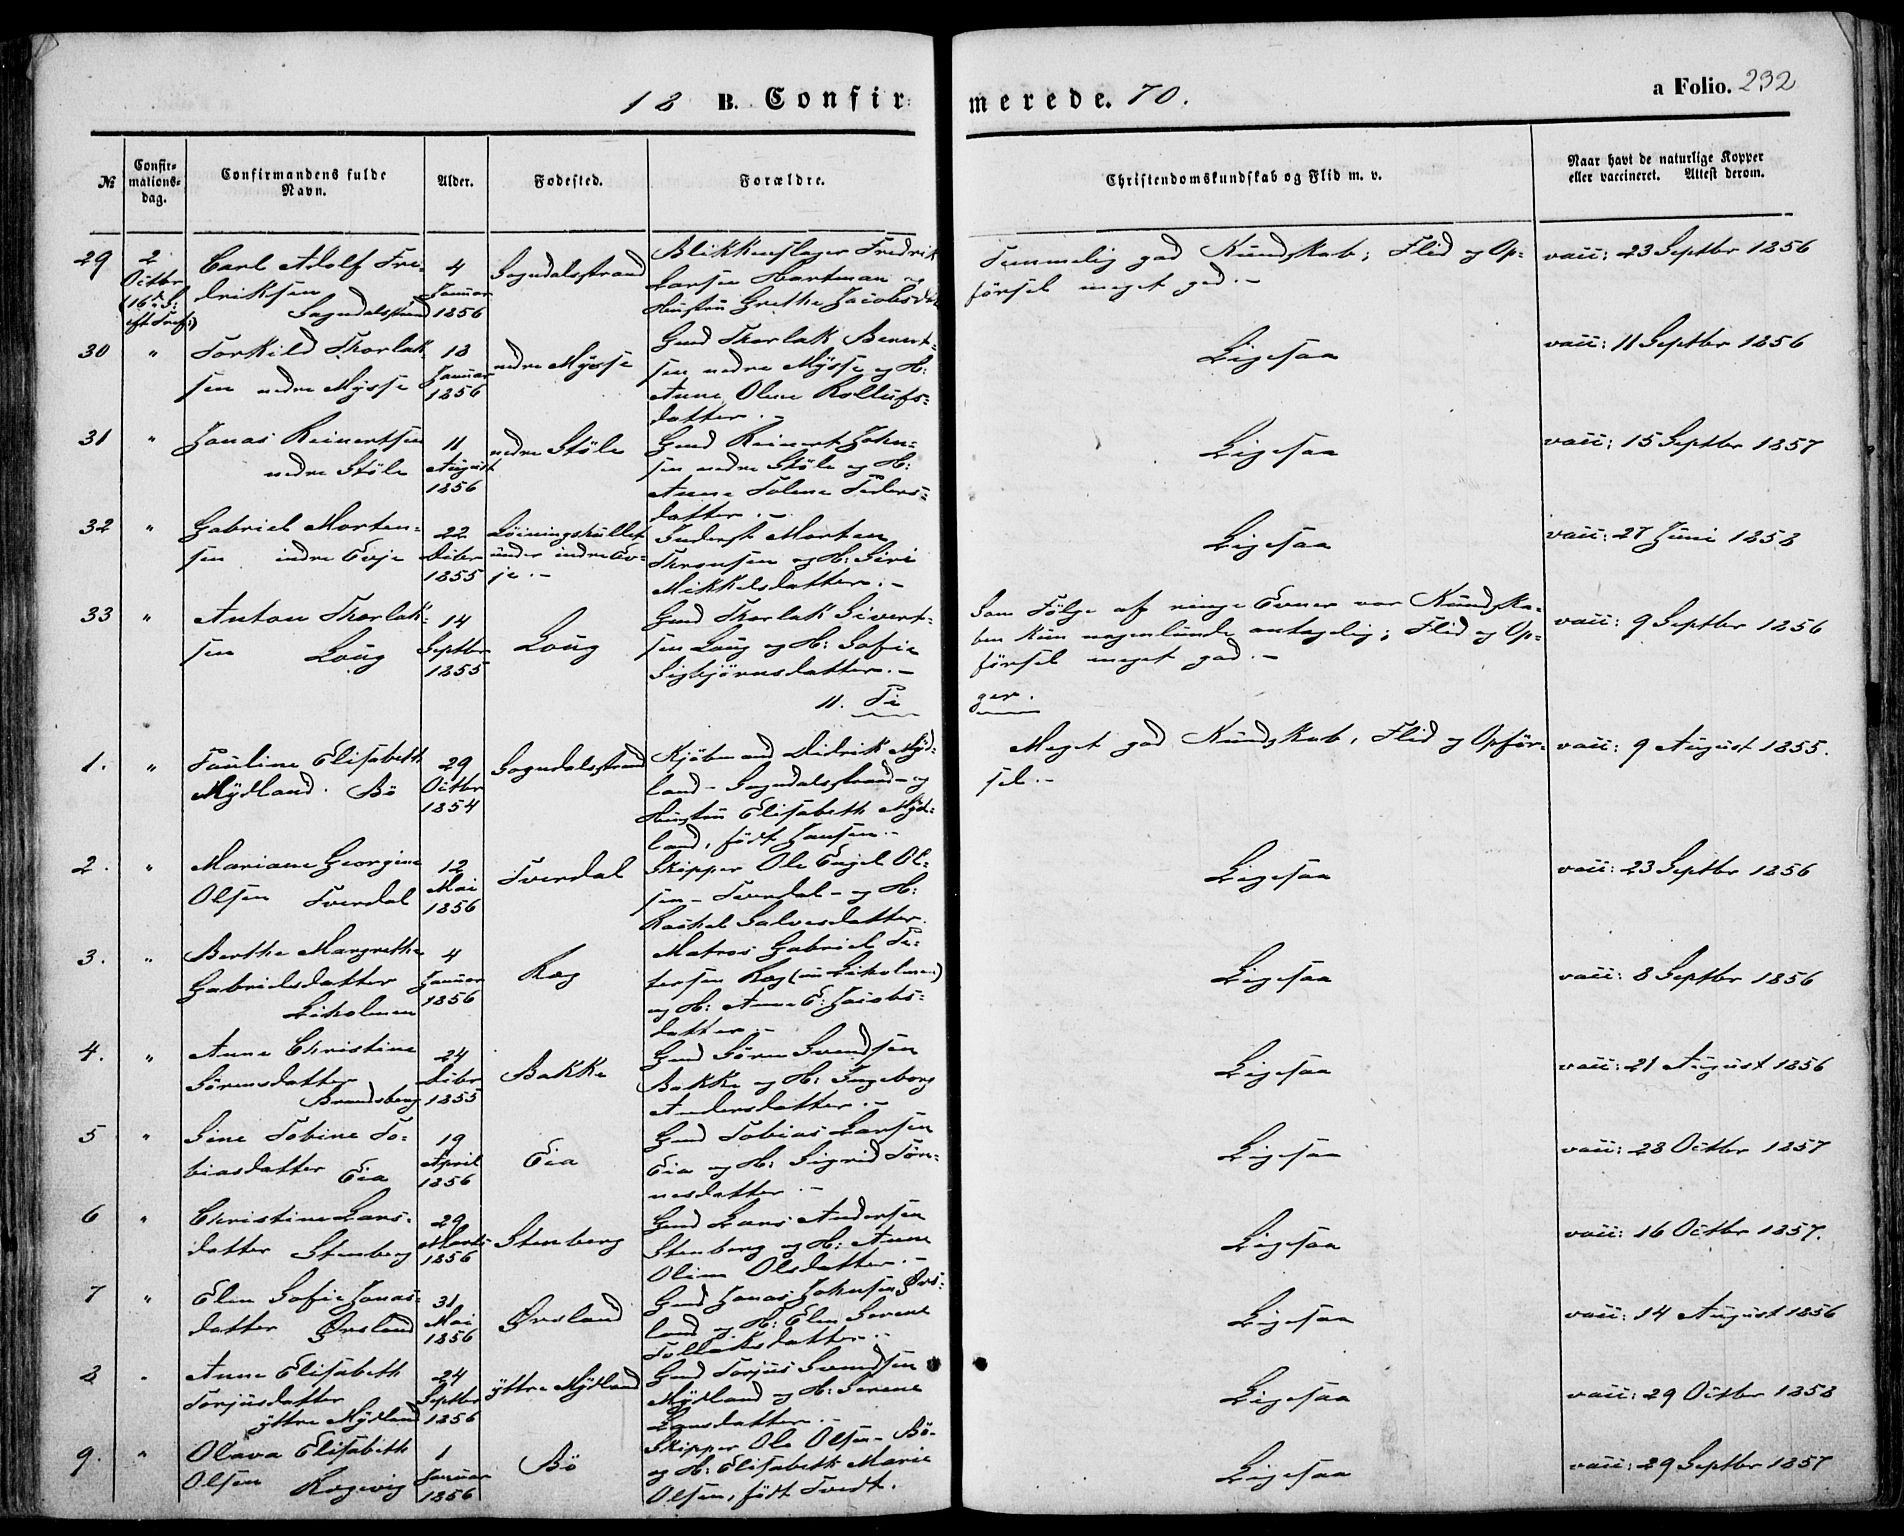 18 B. Confirmerede. 70. a Folio. 232
№ Confirmationsdag. Confirmandens fulde Navn. Alder. Fødested. Forældre. Christendomskundskab og Flid m. v. Naar havt de naturlige Kopper eller vaccineret. Attest derom.
29 2 Octbr (16de S: eft Tref:) Carl Adolf Fredriksen Sogndalstrand 4 Januar 1856 Sogndalsstrand Blikkenslager Fredrik Larsen Hartman og Hustru Grethe Jacobsdtr Temmelig god Kundskab; Flid og Opførsel meget god.- vacc: 23 Septbr 1856
30 " Torkild Thorlaksen nedre Mysse 18 Januar 1856 nedre Mysse Gmd Thorlak Berentsen nedre Mysse og H: Anne Oline Rollufsdatter.- Ligesaa vacc: 11 Septbr 1856
31 " Jonas Reinertsen nedre Støle 11 August 1856 nedre Støle Gmd Reinert Johnsen nedre Støle og H: Anne Tolene Pedersdatter.- Ligesaa vacc: 15 Septbr 1857
32 " Gabriel Mortensen indre Evje 22 Decbr 1855 Løiningskullet under indre Evje.- Inderst Morten Thronsen og H: Siri Mikkelsdatter.- Ligesaa vacc: 27 Juni 1858
33 " Anton Thorlaksen Loug 14 Septbr 1855 Loug Gmd Thorlak Sivertsen Loug og H: Sofie Sigbjørnsdatter.- Som Følge af ringe Evner var Kundskaben kun nogenlunde antagelig; Flid og Opførsel meget god.- vacc: 9 Septbr 1856
11. Piger.
1. " Pauline Elisabeth Mydland. Bø 29 Octbr 1854 Sogndalsstrand Kjøbmand Didrik Mydland - Sogndalsstrand - og Hustru Elisabeth Mydland, født Jansen.- Meget god Kundskab, Flid og Opførsel.- vacc: 9 August 1855.
2. " Mariane Georgine Olsen Tverdal 12 Mai 1856 Tverdal Skipper Ole Engel Olsen - Tverdal - og H: Rachel Salvesdatter. Ligesaa vacc: 23 Septbr 1856
3. " Berthe Margrethe Gabrielsdatter Liholmen 4 Januar 1856 Rog Matros Gabriel Petersen Rog (nu Liholmen) og H: Anne E: Jacobsdatter.- Ligesaa vacc: 8 Septbr 1856
4. " Anne Christine Sørensdatter Brandsberg 24 Decbr 1855 Bakke Gmd Søren Svendsen Bakke og H: Ingeborg Andersdatter.- Ligesaa vacc: 21 August 1856
5 " Sine Tobine Tobiasdatter Eia 19 April 1856 Eia Gmd Tobias Larsen Eia og H: Sigrid Tønnesdatter.- Ligesaa vacc: 28 Octbr 1857
6 " Christine Larsdatter Stenberg 29 Marts 1856 Stenberg Gmd Lars Andersen Stenberg og H: Anne Oline Olsdatter.- Ligesaa vacc: 16 Octbr 1857.
7 " Elen Sofie Jonasdatter Ørsland 31 Mai 1856 Ørsland Gmd Jonas Johnsen Ørsland og H: Elen Serene Tollaksdatter.- Ligesaa vacc: 14 August 1856
8 " Anne Elisabeth Torjusdatter yttre Mydland 24 Septbr 1856 yttre Mydland Gmd Torjus Svendsen Mydland og H: Serene Larsdatter.- Ligesaa vacc: 29 Octbr 1858
9. " Olava Elisabeth Olsen Rogevig 1 Januar 1856 Bø Skipper Ole Olsen - Bø - og H: Elisabeth Marie Olsen, født Tvedt. Ligesaa vacc: 29 Septbr 1857